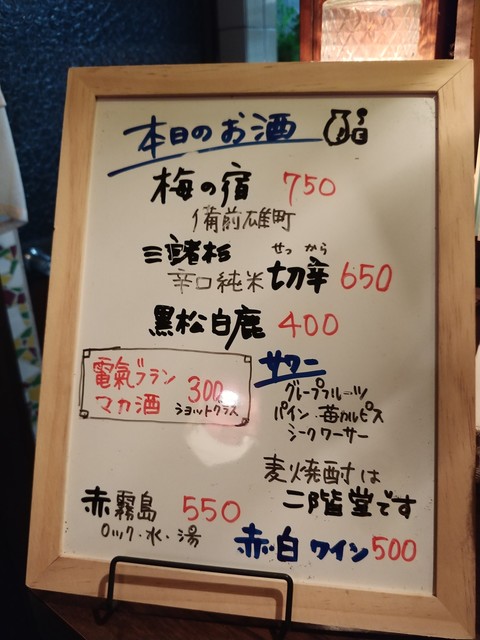 本日のお酒
梅の宿 750
備前雄町
三諸杉 せっから
辛口純米 切辛 650
黒松白鹿 400
電氣ブラン 300
マカ酒 ショットグラス
サワー
グレープフルーツ
パイン・苺カルピス
シークワーサー
麦焼酎は
二階堂です
赤霧島 550
ロック・水・湯
赤・白 ワイン 500